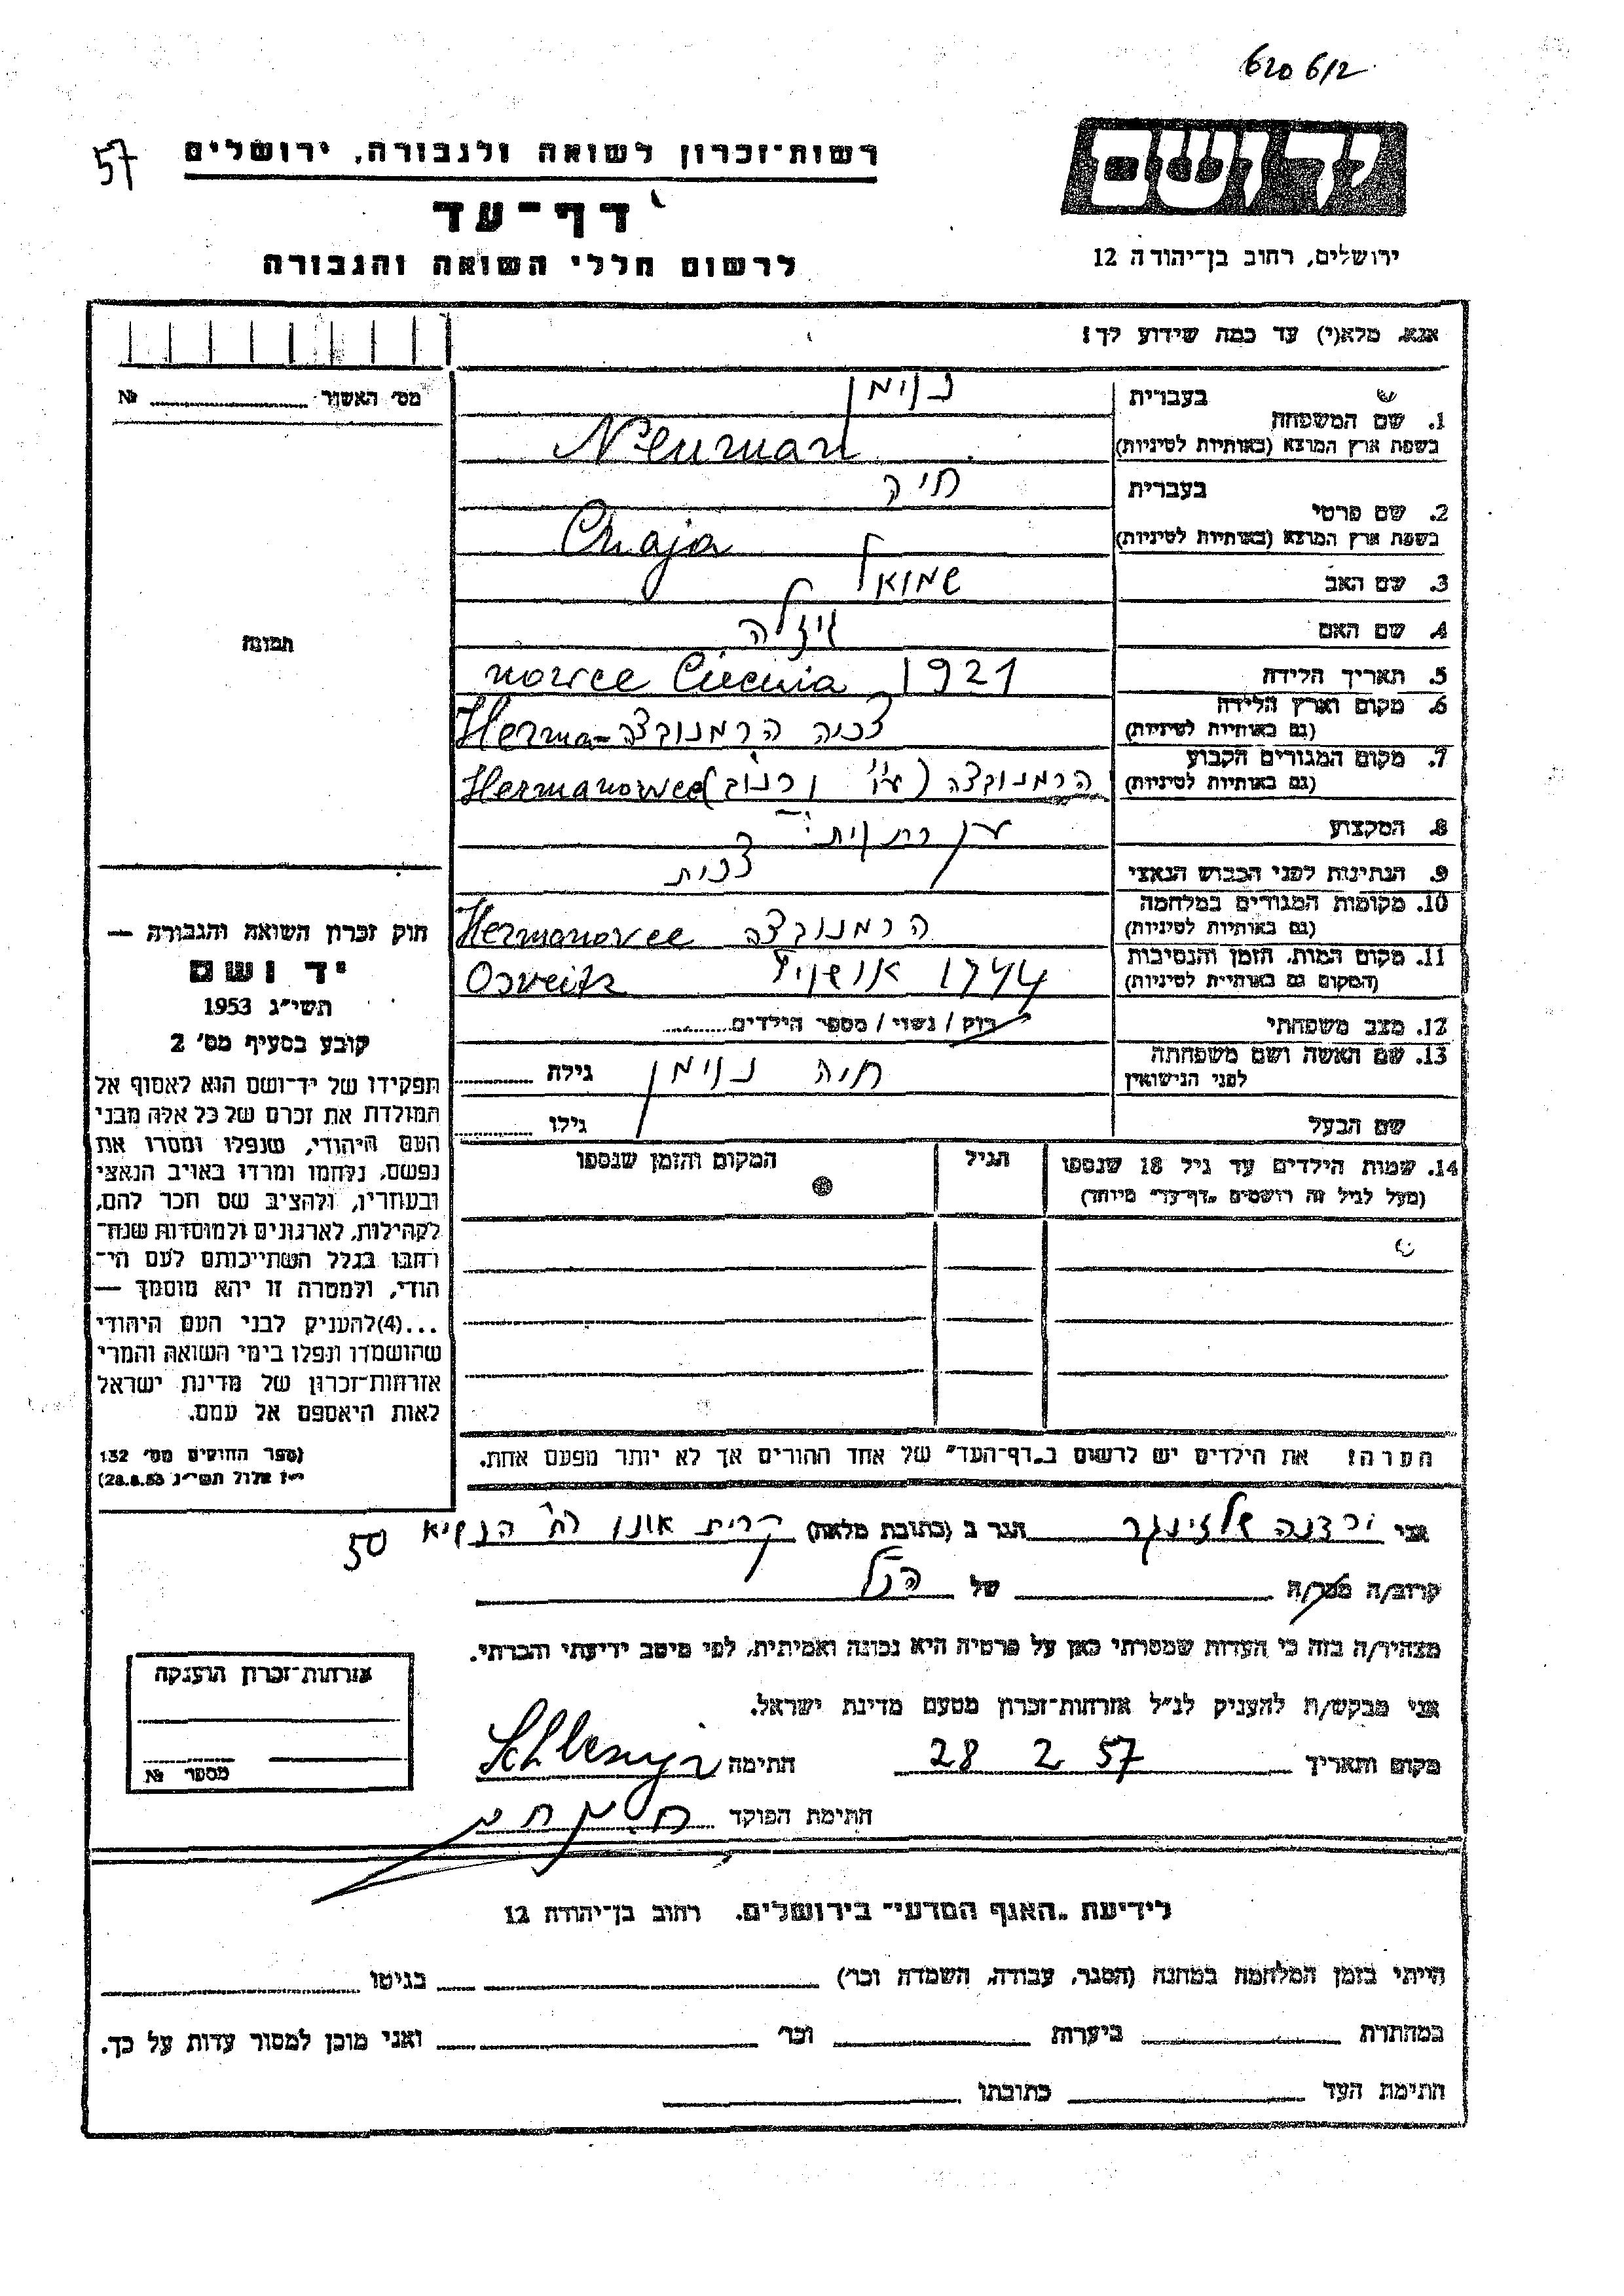 620612
57
רשות־זכרון לשואה ולגבורה, ירושלים
יד ושם
דף־עד
ירושלים, רחוב בן־יהודה 12
לרשום חללי השואה והגבורה
אנא, מלא(י) עד כמה שידוע לך!
מס׳ האשור № 
1. שם המשפחה
בעברית
נוימן
בשפת ארץ המוצא (באותיות לטיניות)
Neuman
2. שם פרטי
בעברית
חיה
בשפת ארץ המוצא (באותיות לטיניות)
Chaja
3. שם האב
שמואל
4. שם האם
גיזלה
תמונה
5. תאריך הלידה
1921
6. מקום וארץ הלידה
(גם באותיות לטיניות)
צכיה הרמנובצה Herma-
7. מקום המגורים הקבוע
(גם באותיות לטיניות)
8. המקצוע
9. הנתינות לפני הכבוש הנאצי
צכית
10. מקומות המגורים במלחמה
(גם באותיות לטיניות)
הרמנובצה Hermanovce
11. מקום המות, הזמן והנסיבות
(המקום גם באותיות לטיניות)
1944 אושויץ Osveitz
12. מצב משפחתי
רוק / נשוי / מספר הילדים
13. שם האשה ושם משפחתה
לפני הנישואין
חיה נוימן גילה
שם הבעל גילו
14. שמות הילדים עד גיל 18 שנספו
(מעל לגיל זה רושמים „דף־עד” מיוחד)
הגיל
המקום והזמן שנספו
חוק זכרון השואה והגבורה —
יד ושם
תשי״ג 1953
קובע בסעיף מס׳ 2
תפקידו של יד־ושם הוא לאסוף אל
המולדת את זכרם של כל אלה מבני
העם היהודי, שנפלו ומסרו את
נפשם, נלחמו ומרדו באויב הנאצי
ובעוזריו, ולהציב שם וזכר להם,
לקהילות, לארגונים ולמוסדות שנח־
רבו בגלל השתייכותם לעם הי־
הודי, ולמטרה זו יהא מוסמך —
...(4) להעניק לבני העם היהודי
שהושמדו ונפלו בימי השואה והמרי
אזרחות־זכרון של מדינת ישראל
לאות היאספם אל עמם.
(ספר החוקים מס׳ 132
י״ז אלול תשי״ג 28.8.53)
הערה! את הילדים יש לרשום ב„דף־העד” של אחד ההורים אך לא יותר מפעם אחת.
אני ורדנה שלזינגר הגר ב (כתובת מלאה) קרית אונו רח׳ הנשיא 50
קרוב/ה מכר/ה של הנ״ל
מצהיר/ה בזה כי העדות שמסרתי כאן על פרטיה היא נכונה ואמיתית, לפי מיטב ידיעתי והכרתי.
אני מבקש/ת להעניק לנ״ל אזרחות־זכרון מטעם מדינת ישראל.
מקום ותאריך 28 2 57 חתימה
חתימת הפוקד
אזרחות־זכרון הוענקה
מספר №
לידיעת „האגף המדעי” בירושלים, רחוב בן־יהודה 12
הייתי בזמן המלחמה במחנה (הסגר, עבודה, השמדה וכו׳) בגיטו
במחתרת ביערות וכו׳ ואני מוכן למסור עדות על כך.
חתימת העד כתובתו